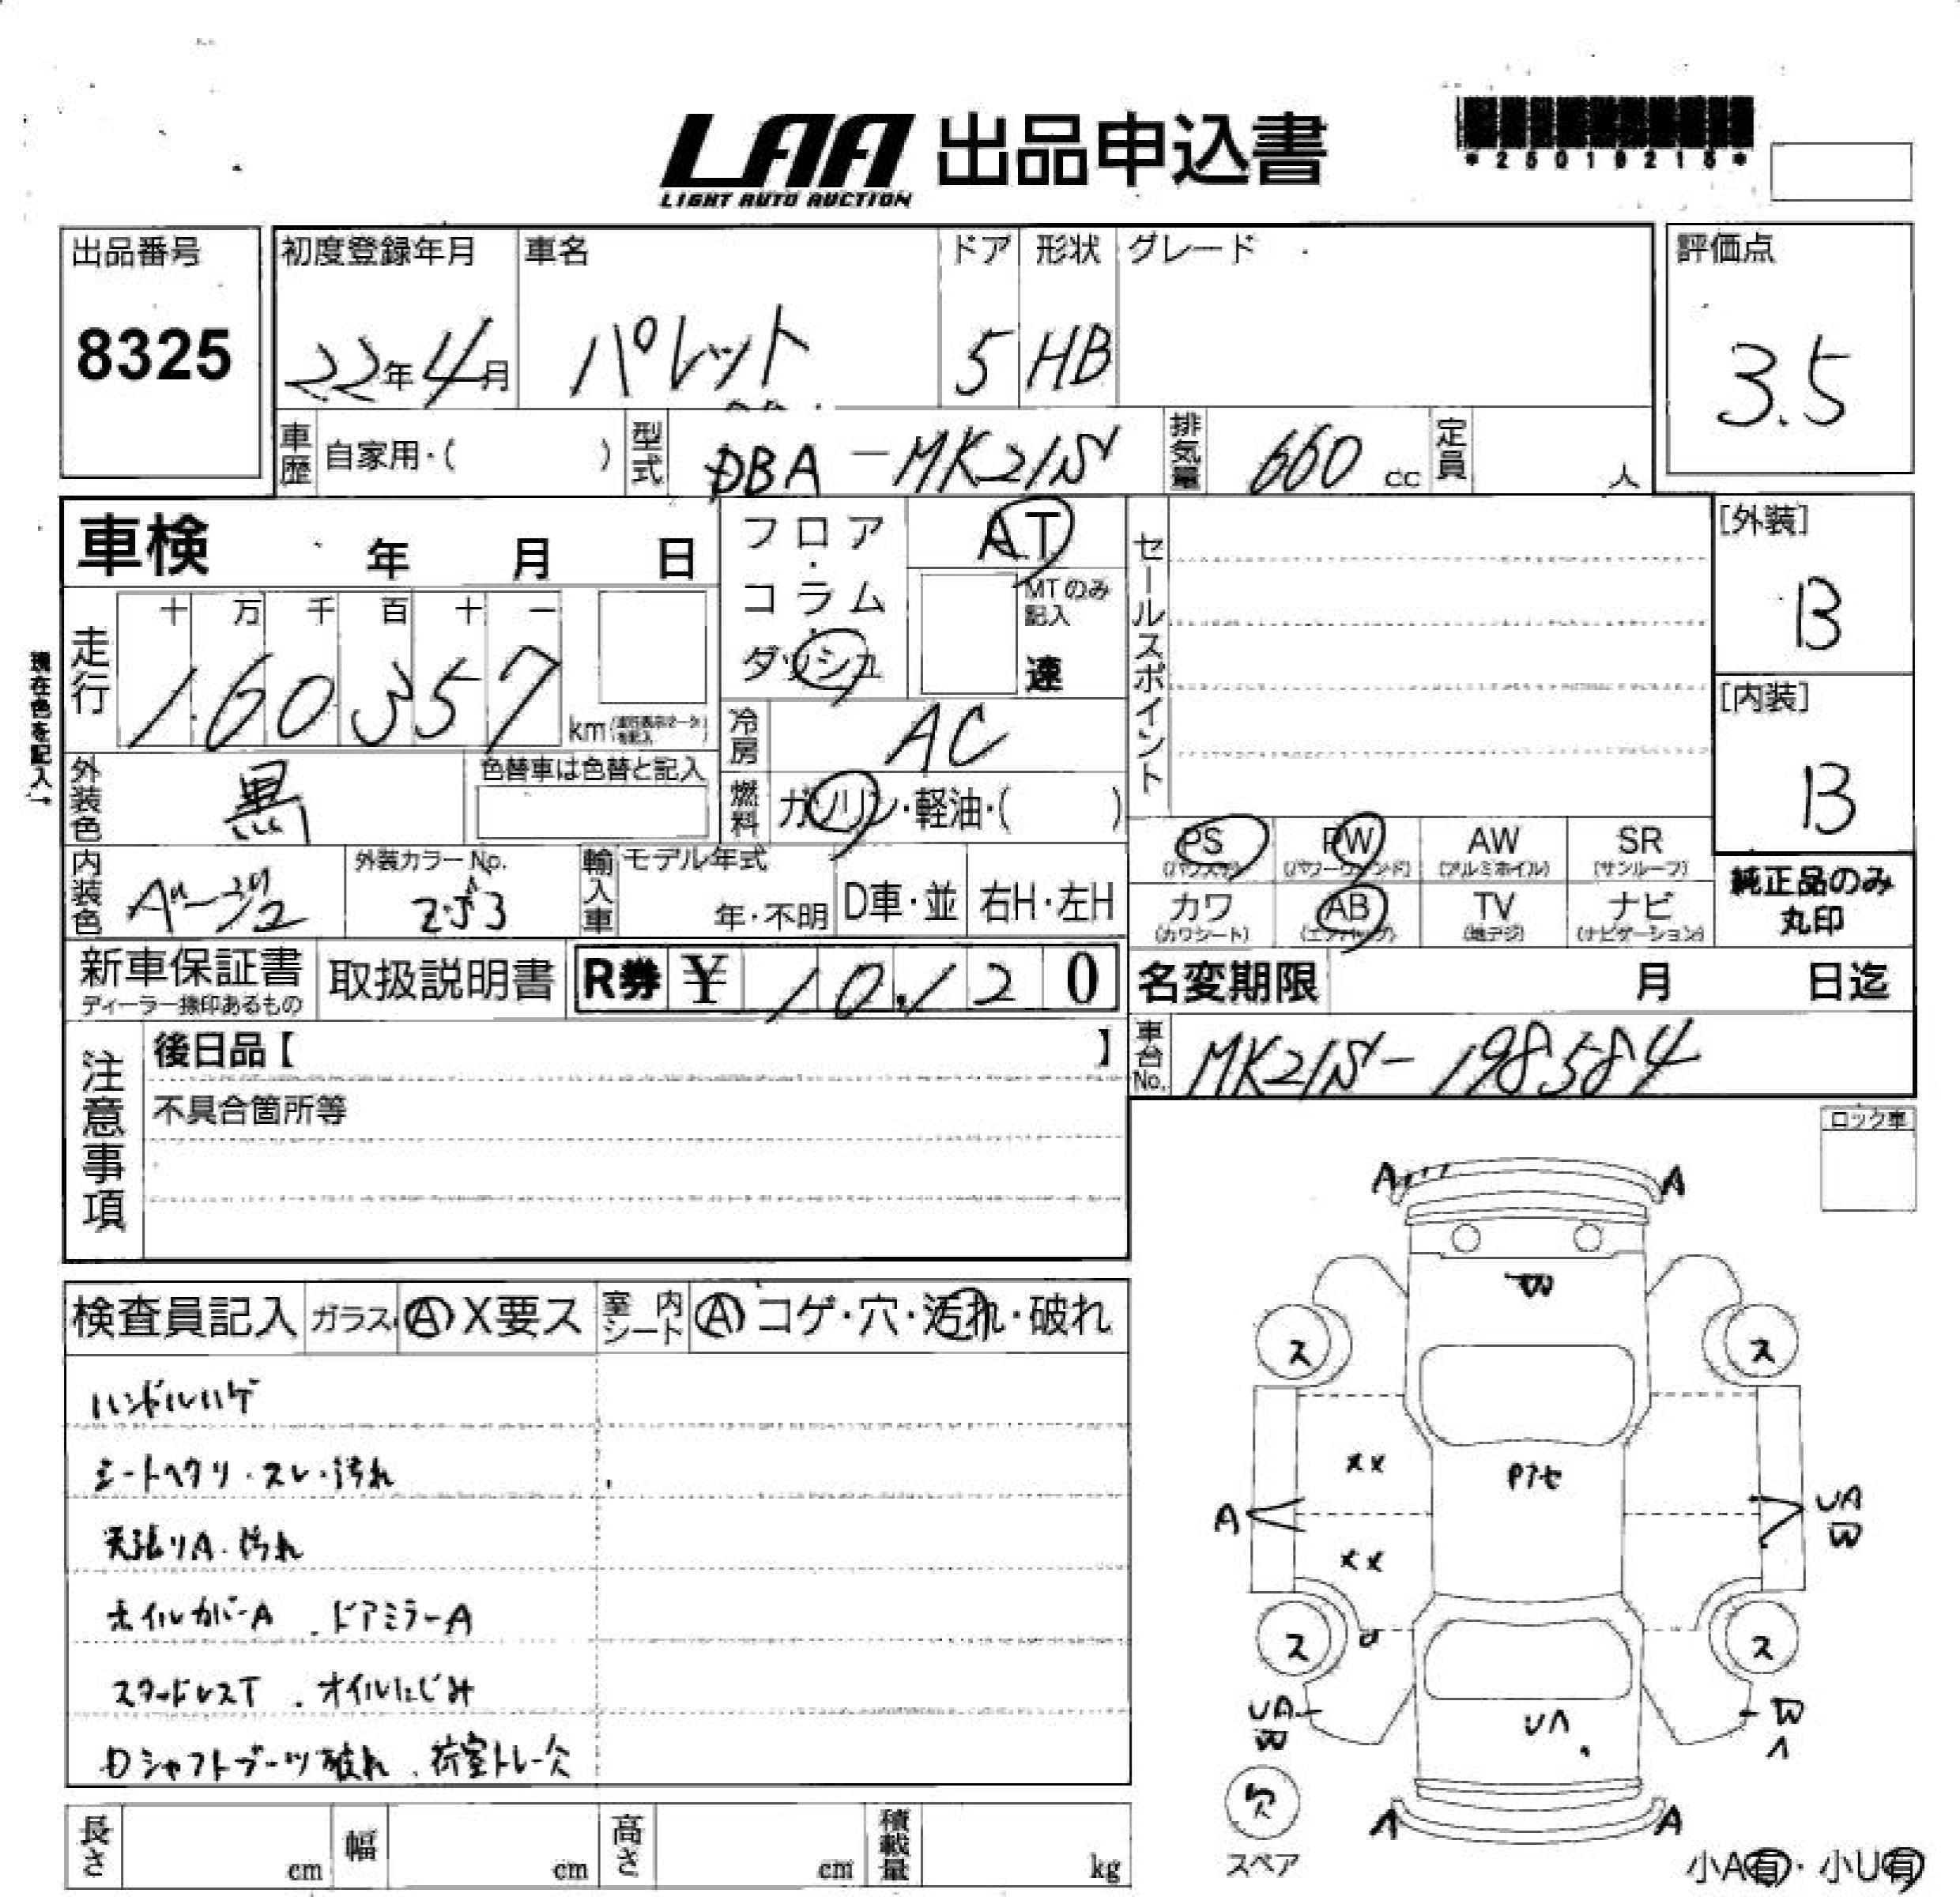 LAA 出品申込書
LIGHT AUTO AUCTION
*25019215*
出品番号 初度登録年月 車名 ドア 形状 グレード 評価点
8325 22年4月 パレット 5 HB 3.5
車歴 自家用・( ) 型式 DBA-MK21S 排気量 660 cc 定員 人
車検 年 月 日
フロア・コラム・ダッシュ AT
MTのみ記入 速
セールスポイント
[外装]
B
[内装]
B
現在色を記入→
走行 十 万 千 百 十 一
160357 km
冷房 AC
外装色 黒 色替車は色替と記入
燃料 ガソリン・軽油・( )
内装色 外装カラーNo. ZJ3
輸入車 モデル年式 年・不明 D車・並 右H・左H
PS (パワステ) PW (パワーウィンド) AW (アルミホイル) SR (サンルーフ)
カワ (カワシート) AB (エアバッグ) TV (地デジ) ナビ (ナビゲーション)
純正品のみ
丸印
新車保証書 取扱説明書 R券 ¥ 10,120
ディーラー捺印あるもの
名変期限 月 日迄
車台No. MK21S-198584
注意事項
後日品【 】
不具合箇所等
ロック車
検査員記入 ガラス A X要ス 室内シート A コゲ・穴・汚れ・破れ
ハンドルハゲ
シートヘタリ・スレ・汚れ
天張りA・汚れ
ホイルカバーA . ドアミラーA
スタッドレスT . オイルにじみ
Dシャフトブーツ破れ . 荷室トレー欠
A A
W
ス ス
XX
Pアセ
A UA
W
XX
ス ス
UA W
W UA A
欠
スペア
A A
小A有・小U有
長さ cm 幅 cm 高さ cm 積載量 kg